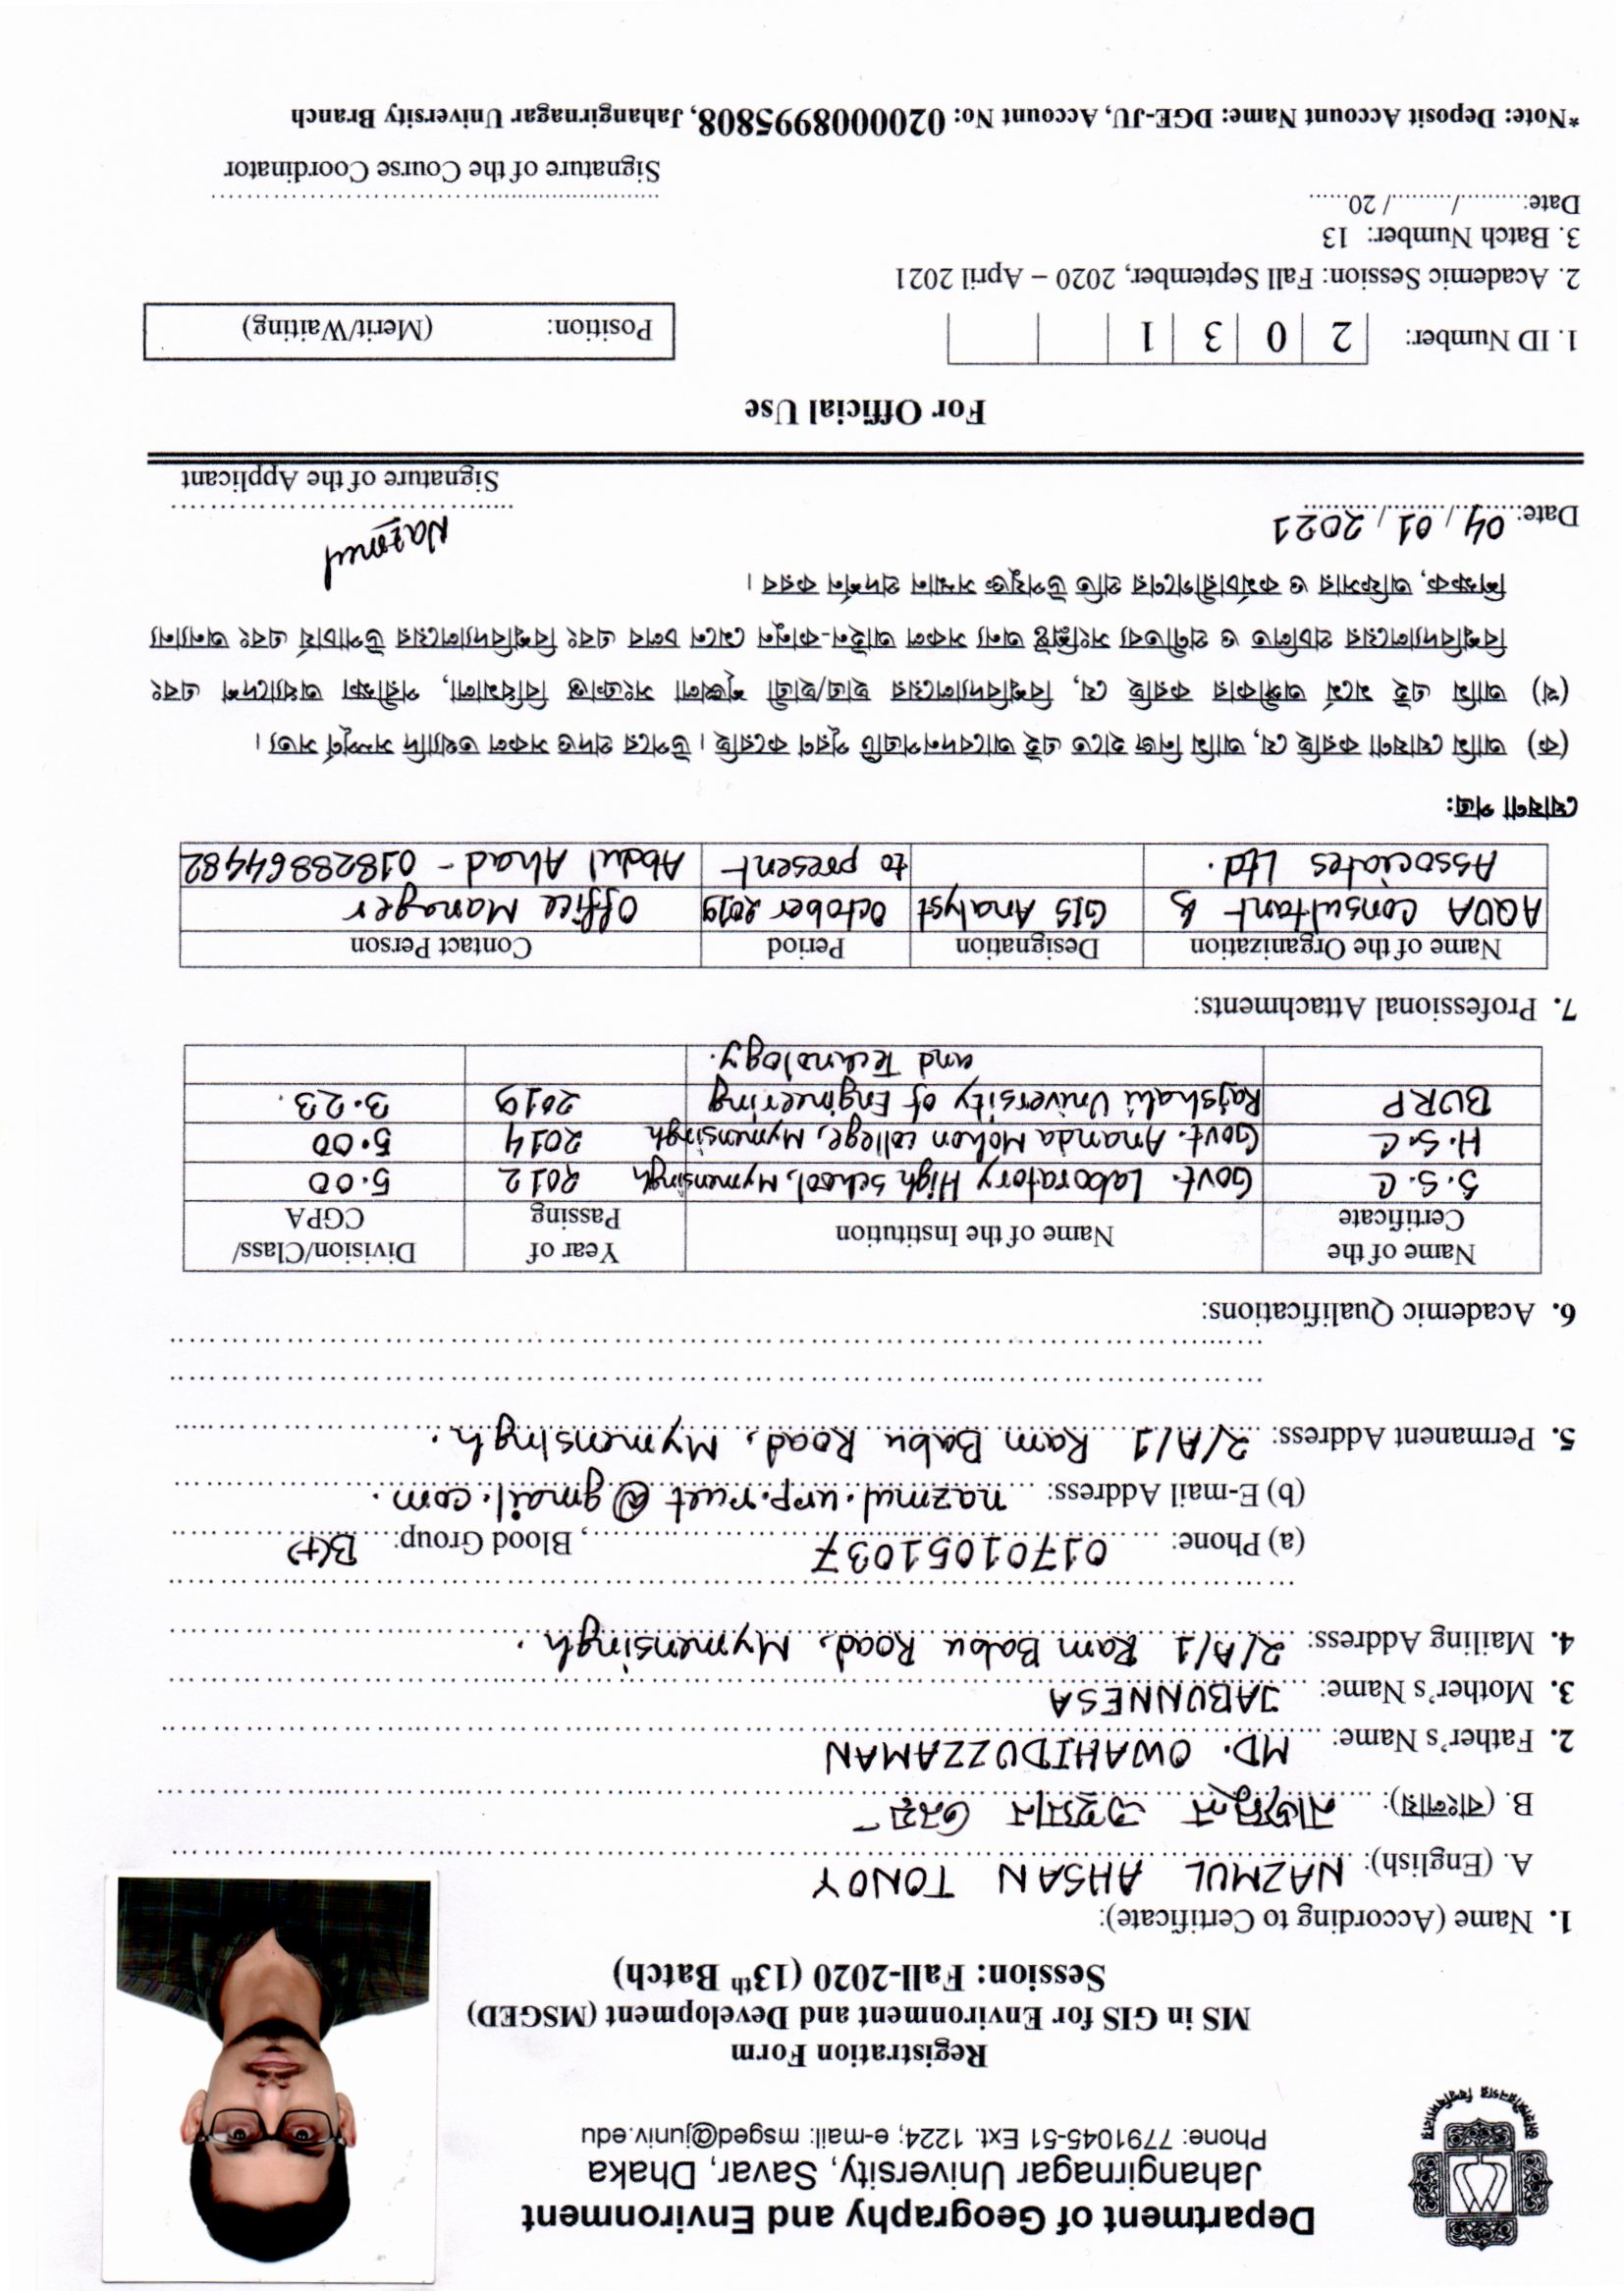 জাহাঙ্গীরনগর বিশ্ববিদ্যালয়
Department of Geography and Environment
Jahangirnagar University, Savar, Dhaka
Phone: 7791045-51 Ext. 1224; e-mail: msged@juniv.edu
Registration Form
MS in GIS for Environment and Development (MSGED)
Session: Fall-2020 (13th Batch)
1. Name (According to Certificate):
A. (English): NAZMUL AHSAN TONOY
B. (বাংলায়): নাজমুল এহসান তনয়
2. Father's Name: MD. OWAHIDUZZAMAN
3. Mother's Name: JABUNNESA
4. Mailing Address: 2/A/1 Ram Babu Road, Mymensingh.
(a) Phone: 01701051037, Blood Group: B(+)
(b) E-mail Address: nazmul.urp.ruet@gmail.com.
5. Permanent Address: 2/A/1 Ram Babu Road, Mymensingh.
6. Academic Qualifications:
Name of the Certificate Name of the Institution Year of Passing Division/Class/CGPA
S.S.C Govt. Laboratory High School, Mymensingh 2012 5.00
H.S.C Govt. Ananda Mohon college, Mymensingh 2014 5.00
BURP Rajshahi University of Engineering 2019 3.23.
and Technology.
7. Professional Attachments:
Name of the Organization Designation Period Contact Person
AQUA Consultant & GIS Analyst October 2019 Office Manager
Associates Ltd. to present Abdul Ahad - 01828864482
ঘোষণা পত্র:
(ক) আমি ঘোষণা করছি যে, আমি নিজ হাতে এই আবেদনপত্রটি পূরণ করেছি। উপরে প্রদত্ত সকল তথ্যাদি সম্পূর্ণ সত্য।
(খ) আমি এই মর্মে অঙ্গীকার করছি যে, বিশ্ববিদ্যালয়ের ছাত্র/ছাত্রী শৃঙ্খলা সংক্রান্ত বিধিমালা, পরীক্ষা অধ্যাদেশ এবং
বিশ্ববিদ্যালয়ের প্রচলিত ও প্রণীতব্য সংশ্লিষ্ট অন্য সকল আইন-কানুন মেনে চলব এবং বিশ্ববিদ্যালয়ের উপাচার্য এবং অন্যান্য
শিক্ষক, অফিসার ও কর্মচারীগণের প্রতি উপযুক্ত সম্মান প্রদর্শন করব।
Nazmul
Date: 04/01/2021
Signature of the Applicant
For Official Use
1. ID Number: 2 0 3 1
Position: (Merit/Waiting)
2. Academic Session: Fall September, 2020 – April 2021
3. Batch Number: 13
Date:........./........./ 20......
Signature of the Course Coordinator
*Note: Deposit Account Name: DGE-JU, Account No: 0200008995808, Jahangirnagar University Branch